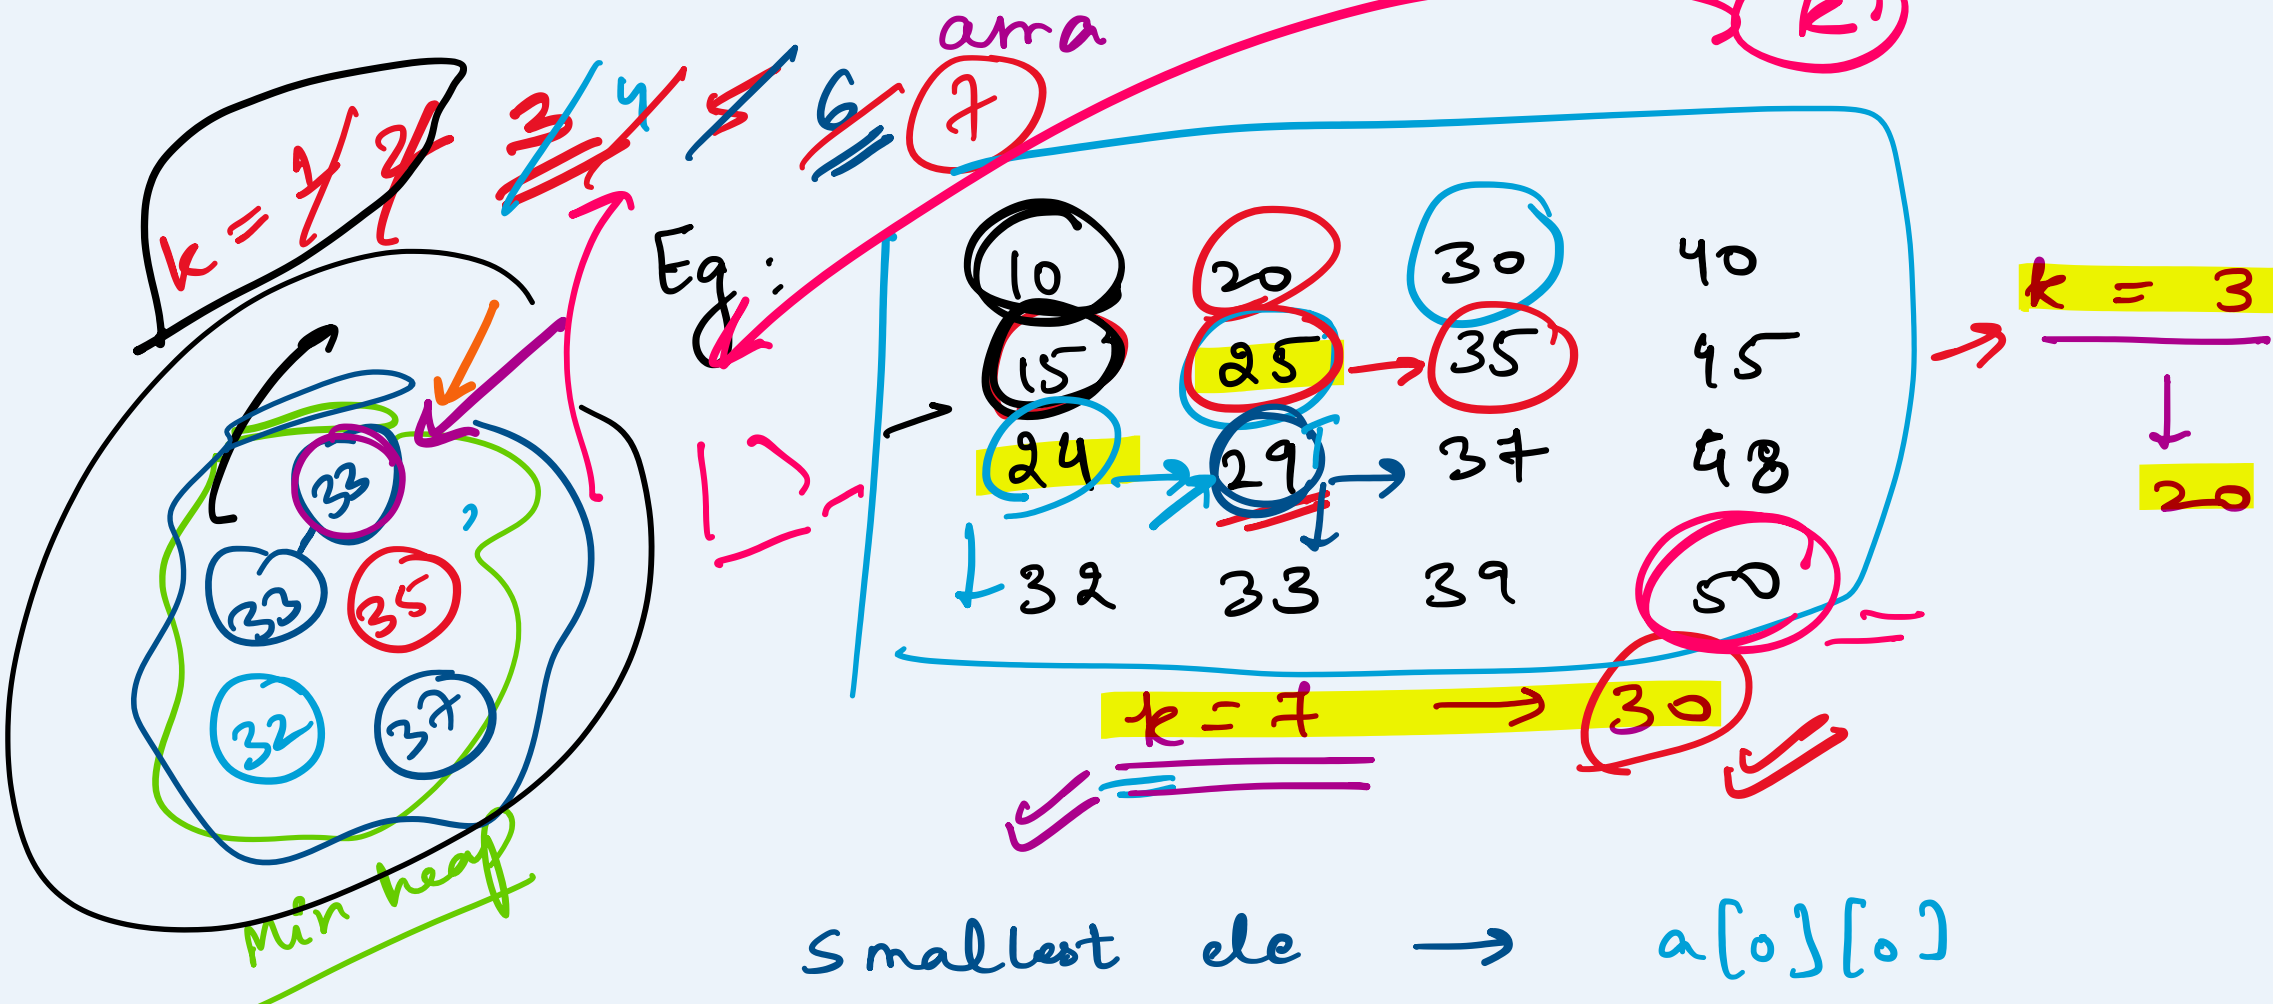 ama
k = 1 2 3 4 5 6 7
k
Eg:
10 20 30 40
15 25 35 45
24 29 37 48
32 33 39 50
k = 3
20
33
33 35
32 37
k = 7 → 30
Min heap
smallest ele → a[0][0]